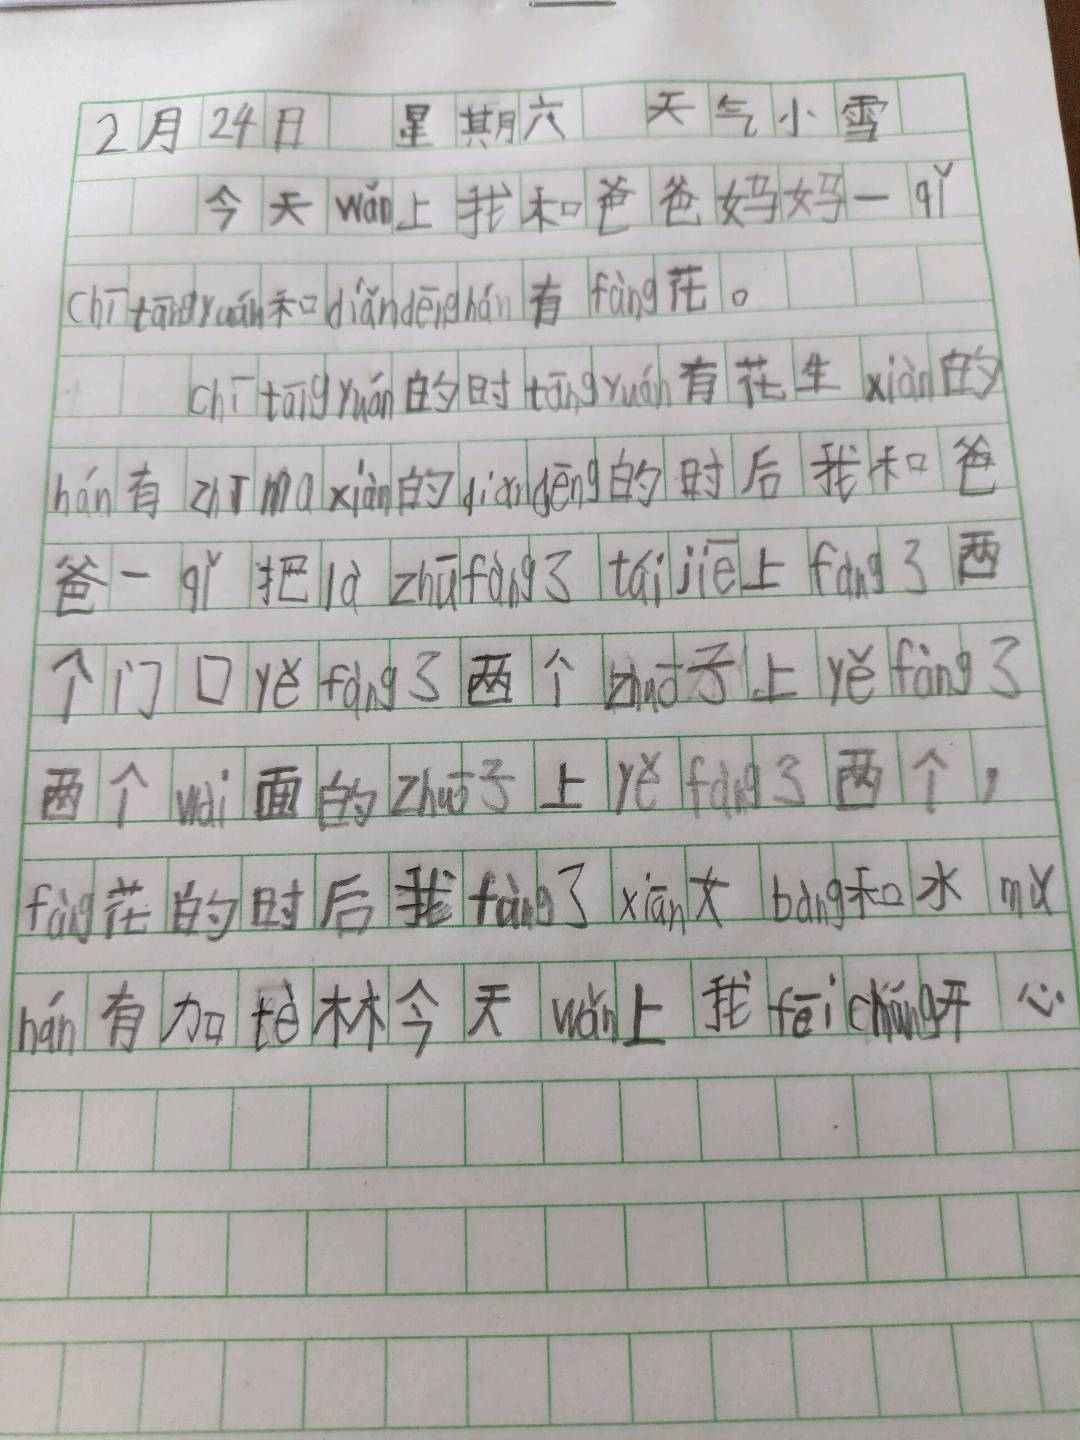 2月24日 星期六 天气小雪
今天wǎn上我和爸爸妈妈一qǐ
chī tāngyuán和diǎndēng hán有fàng花。
chī tāngyuán的时tāngyuán有花生xiàn的
hán有zhīma xiàn的diǎndēng的时后我和爸
爸一qǐ把là zhūfàng了tái jiē上fàng了两
个门口yě fàng了两个zhuō子上yě fàng了
两个wài面的zhuō子上yě fàng了两个，
fàng花的时后我fàng了xiān女bàng和水mǔ
hán有加tè林今天wǎn上我fēicháng开心